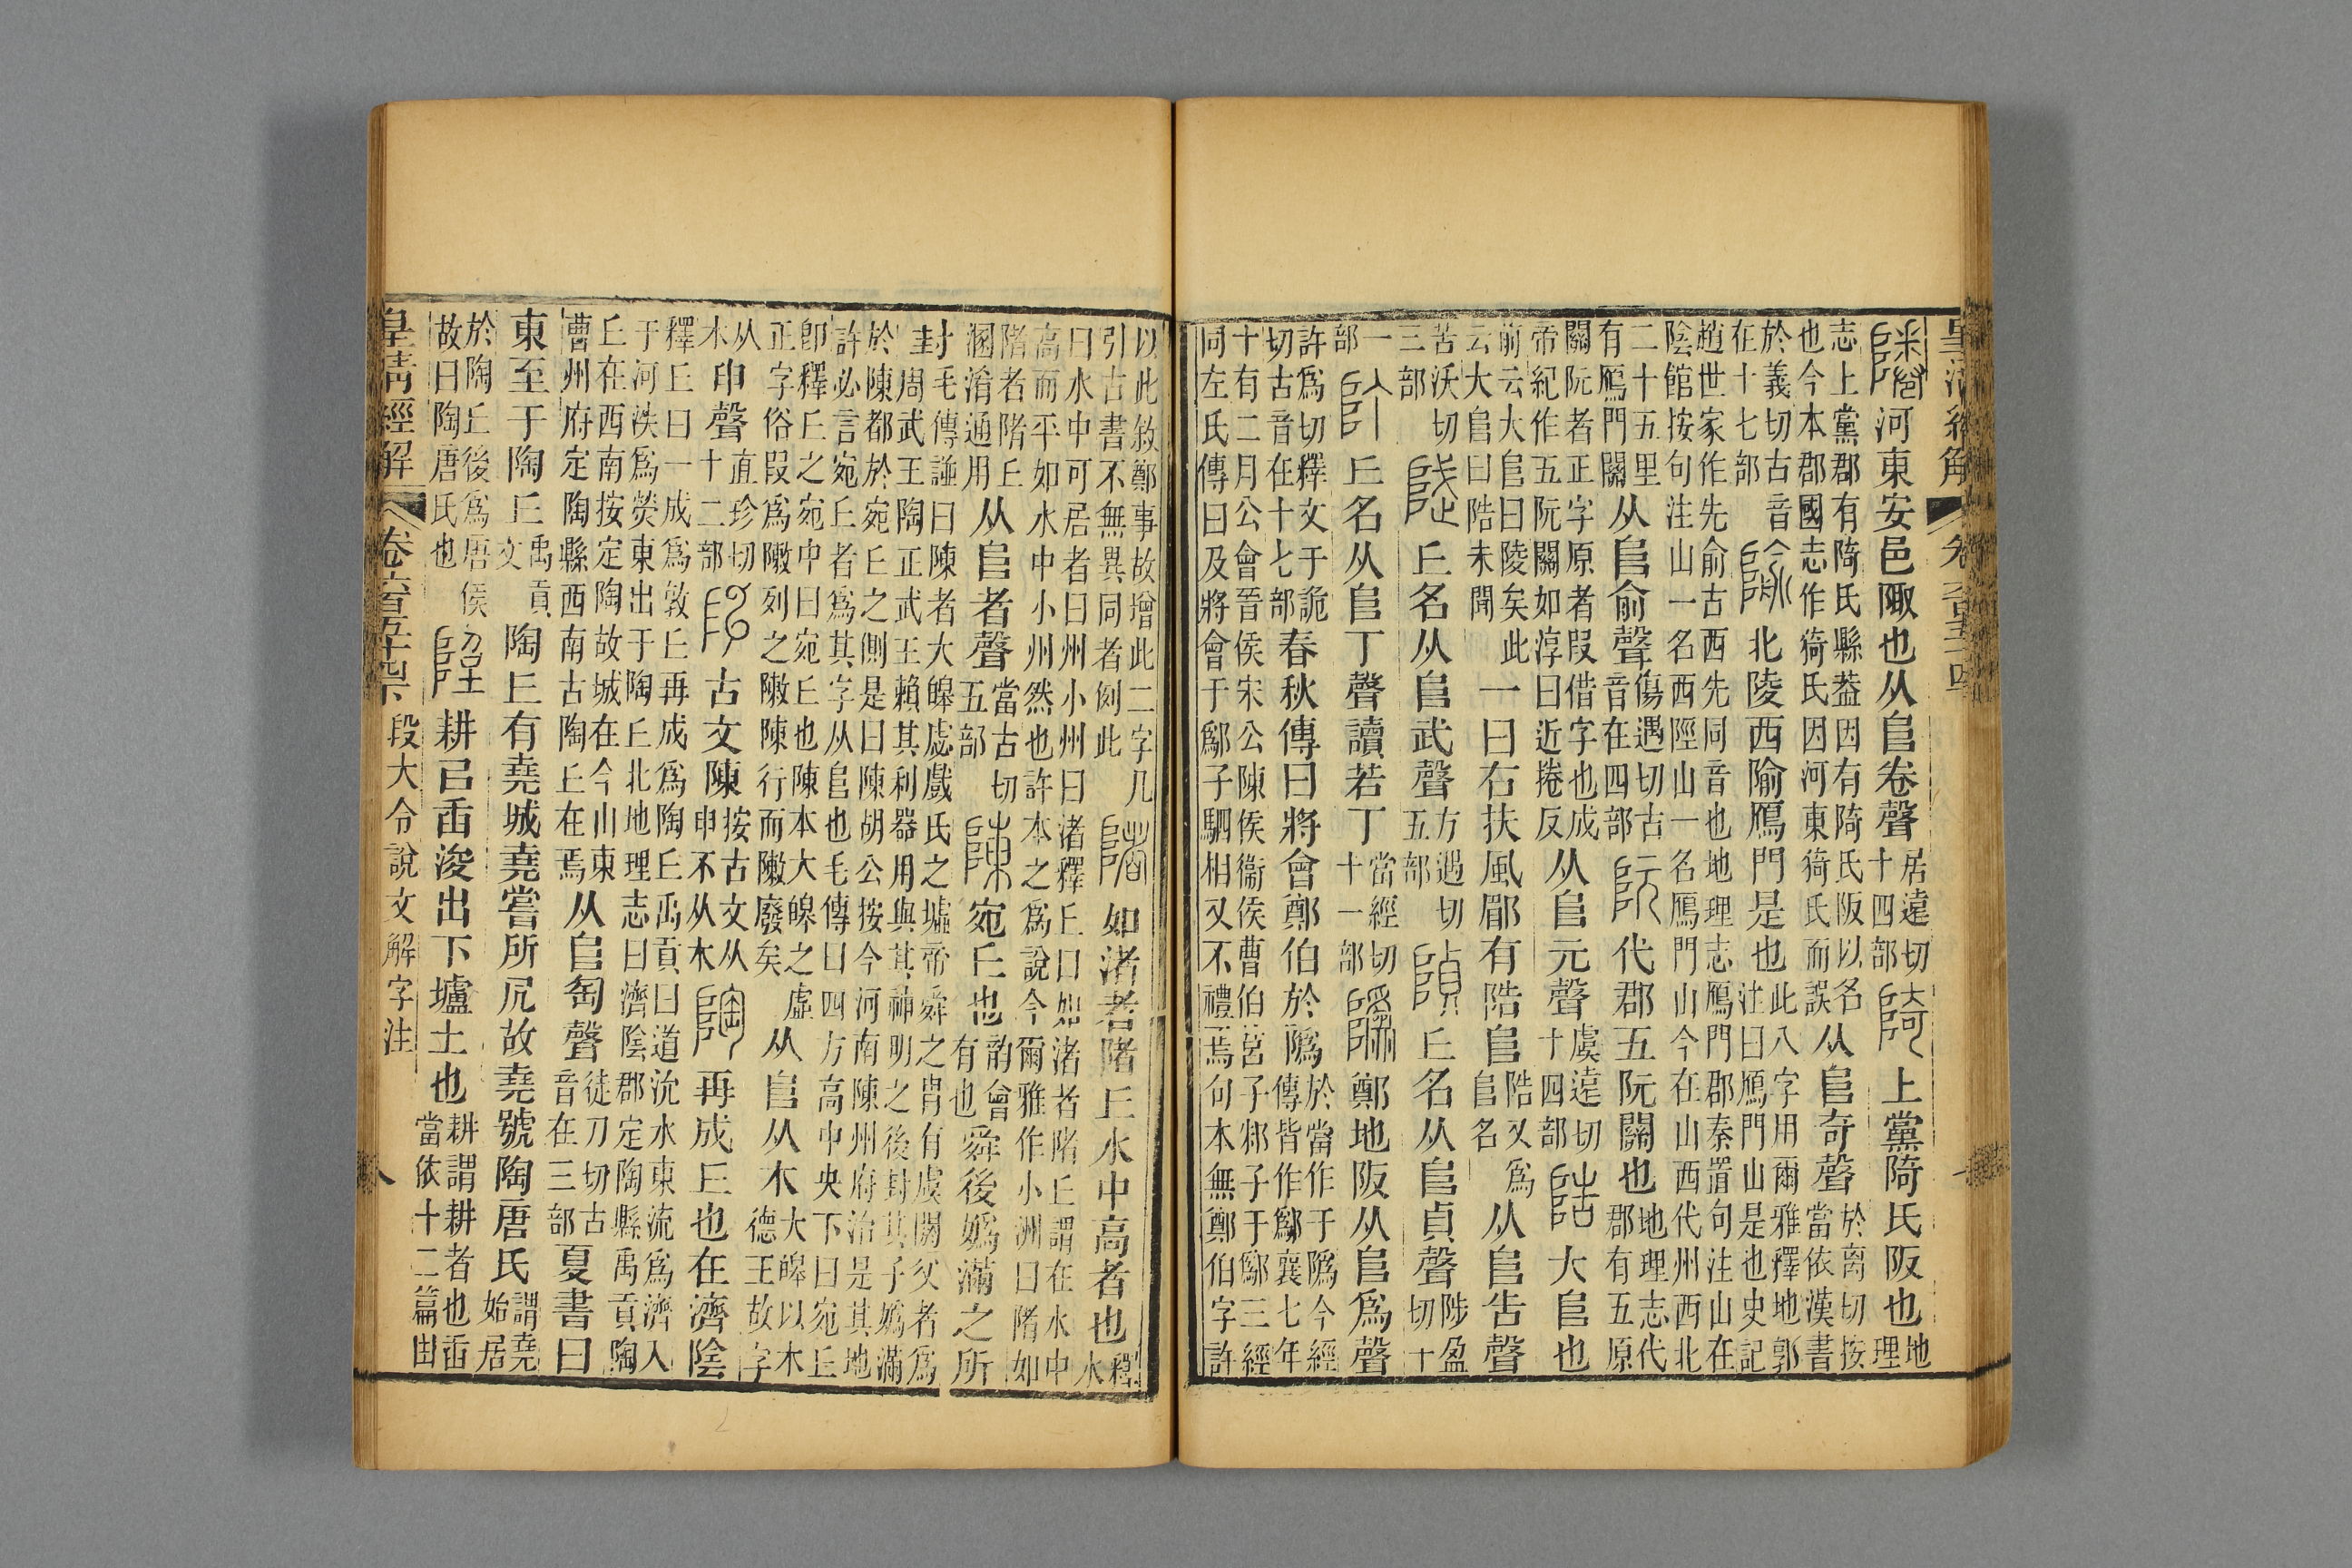 河東安邑陬也从𨸏卷聲居遠切十四部上黨陭氏阪也地理
志上黨郡有陭氏縣葢因有陭氏阪以名也今本郡國志作猗氏因河東猗氏而誤从𨸏奇聲於离切按當依漢書
於義切古音在十七部北陵西隃鴈門是也此八字用爾雅釋地郭注曰鴈門山是也史記
趙世家作先俞古西先同音也地理志鴈門郡秦置句注山在陰館按句注山一名西陘山一名鴈門山今在山西代州西北
二十五里有鴈門關从𨸏俞聲傷遇切古音在四部代郡五阮關也地理志代郡有五原
關阮者正字原者叚借字也成帝紀作五阮關如淳曰近捲反从𨸏元聲虞遠切十四部大𨸏也
前云大𨸏曰陵矣此云大𨸏曰未聞一曰右扶風郿有𨸏又爲𨸏名从𨸏告聲
苦沃切三部丘名从𨸏武聲方遇切五部丘名从𨸏貞聲陟盈切十
一部丘名从𨸏丁聲讀若丁當經切十一部鄭地阪从𨸏爲聲
許爲切釋文于詭切古音在十七部春秋傳曰將會鄭伯於䧦於當作于䧦今經傳皆作鄬襄七年
十有二月公會晉侯宋公陳侯衞侯曹伯莒子邾子于鄬三經同左氏傳曰及將會于鄬子駟相又不禮焉句本無鄭伯字許
以此敘鄭事故增此二字凡引古書不無異同者例此如渚者陼丘水中高者也釋水
曰水中可居者曰州小州曰渚釋丘曰如渚者陼丘謂在水中高而平如水中小州然也許本之爲說今爾雅作小洲曰陼如
陼者陼丘溷淆通用从𨸏者聲當古切五部宛丘也韵會有也舜後嬀滿之所
封毛傳譜曰陳者大皞虙戲氏之墟帝舜之胄有虞閼父者爲周武王陶正武王賴其利器用與其神明之後封其子嬀滿
於陳都於宛丘之側是曰陳胡公按今河南陳州府治是其地許必言宛丘者爲其字从𨸏也毛傳曰四方高中央下曰宛丘
卽釋丘之宛中曰宛丘也陳本大皞之虛正字俗叚爲敶列之敶陳行而敶廢矣从𨸏从木大皞以木德王故字
从木申聲直珍切十二部古文陳按古文从申不从木再成丘也在濟陰
釋丘曰一成爲敦丘再成爲陶丘禹貢曰道沇水東流爲濟入于河泆爲熒東出于陶丘北地理志曰濟陰郡定陶縣禹貢陶
丘在西南按定陶故城在今山東曹州府定陶縣西南古陶丘在焉从𨸏匋聲徒刀切古音在三部夏書曰
東至于陶丘禹貢文陶丘有堯城堯嘗所凥故堯號陶唐氏謂堯始居
於陶丘後爲唐侯故曰陶唐氏也耕㠯臿浚出下壚土也耕謂耕者也臿當依十二篇甾
皇清經解 卷六百五十四下 段大令說文解字注 八